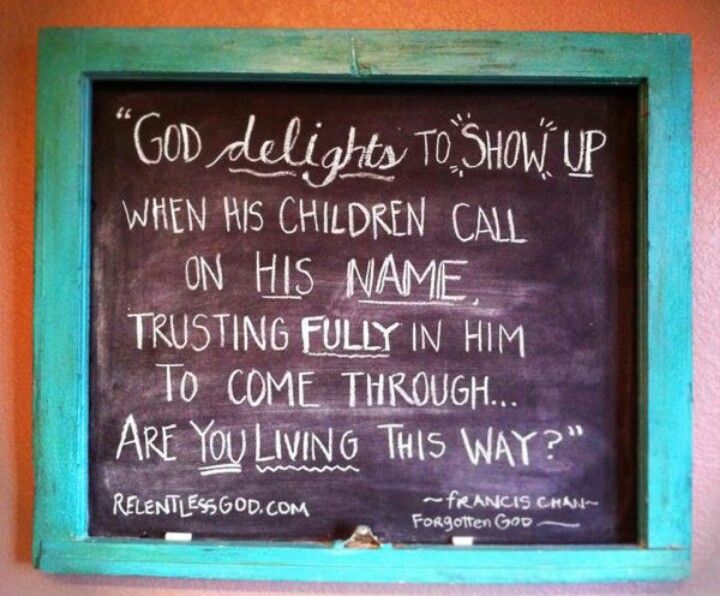 "GOD delights TO SHOW UP
WHEN HIS CHILDREN CALL
ON HIS NAME,
TRUSTING FULLY IN HIM
TO COME THROUGH...
ARE YOU LIVING THIS WAY?"
RELENTLESSGOD.COM
~FRANCIS CHAN~
FORGOTTEN GOD~